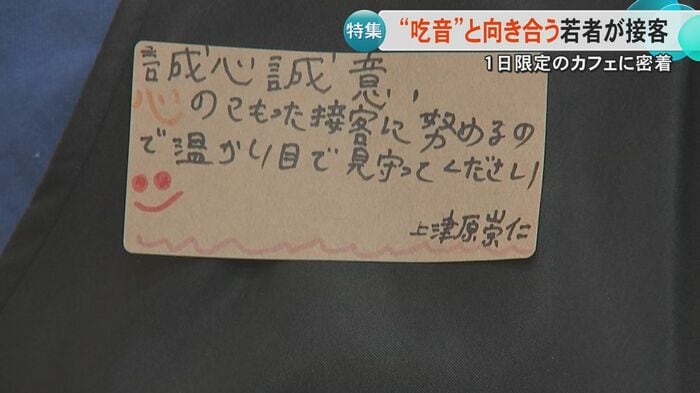 特集 “吃音”と向き合う若者が接客
1日限定のカフェに密着
誠心誠意,
心のこもった接客に努めるの
で温かい目で見守ってください
上津原崇仁